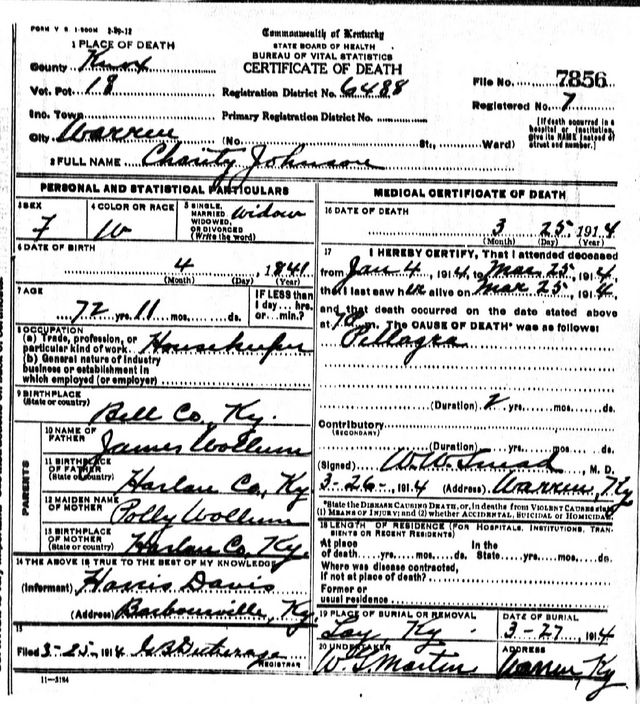 FORM V S 1-500M 2-29-12
Commonwealth of Kentucky
STATE BOARD OF HEALTH
BUREAU OF VITAL STATISTICS
CERTIFICATE OF DEATH
1 PLACE OF DEATH
County Knox
Vot. Pct. 18
Registration District No. 6488
File No. 7856
Inc. Town
Primary Registration District No.
Registered No. 7
City Warren (No. St., Ward)
[If death occurred in a hospital or institution, give its NAME instead of street and number.]
2 FULL NAME Charity Johnson
PERSONAL AND STATISTICAL PARTICULARS
3 SEX F
4 COLOR OR RACE W
5 SINGLE, MARRIED, WIDOWED, OR DIVORCED (Write the word) Widow
6 DATE OF BIRTH
4 , 1841
(Month) (Day) (Year)
7 AGE
72 yrs. 11 mos. ds.
IF LESS than 1 day... hrs. or... min.?
8 OCCUPATION
(a) Trade, profession, or particular kind of work Housekeeper
(b) General nature of industry
business or establishment in
which employed (or employer)
9 BIRTHPLACE
(State or country) Bell Co, Ky.
PARENTS
10 NAME OF FATHER James Wollum
11 BIRTHPLACE OF FATHER (State or country) Harlan Co, Ky
12 MAIDEN NAME OF MOTHER Polly Wollum
13 BIRTHPLACE OF MOTHER (State or country) Harlan Co, Ky.
14 THE ABOVE IS TRUE TO THE BEST OF MY KNOWLEDGE
(Informant) Harris Davis
(Address) Barbourville, Ky.
15
Filed 3-25-, 1914
REGISTRAR
11-3184
MEDICAL CERTIFICATE OF DEATH
16 DATE OF DEATH
3 25 1914
(Month) (Day) (Year)
17 I HEREBY CERTIFY, That I attended deceased
from Jan 4, 1914, to Mar 25, 1914,
that I last saw her alive on Mar 25, 1914
and that death occurred on the date stated above
at m. The CAUSE OF DEATH* was as follows:
Pellagra
(Duration) 2 yrs. mos. ds.
Contributory
(SECONDARY)
(Duration) yrs. mos. ds.
(Signed) , M. D.
3-26-, 1914 (Address) Warren, Ky
*State the DISEASE CAUSING DEATH, or, in deaths from VIOLENT CAUSES state
(1) MEANS OF INJURY; and (2) whether ACCIDENTAL, SUICIDAL or HOMICIDAL.
18 LENGTH OF RESIDENCE (FOR HOSPITALS, INSTITUTIONS, TRANSIENTS OR RECENT RESIDENTS)
At place of death yrs. mos. ds. In the State yrs. mos. ds.
Where was disease contracted,
if not at place of death?
Former or
usual residence
19 PLACE OF BURIAL OR REMOVAL
Lay, Ky
DATE OF BURIAL
3-27, 1914
20 UNDERTAKER
Martin
ADDRESS
Warren, Ky